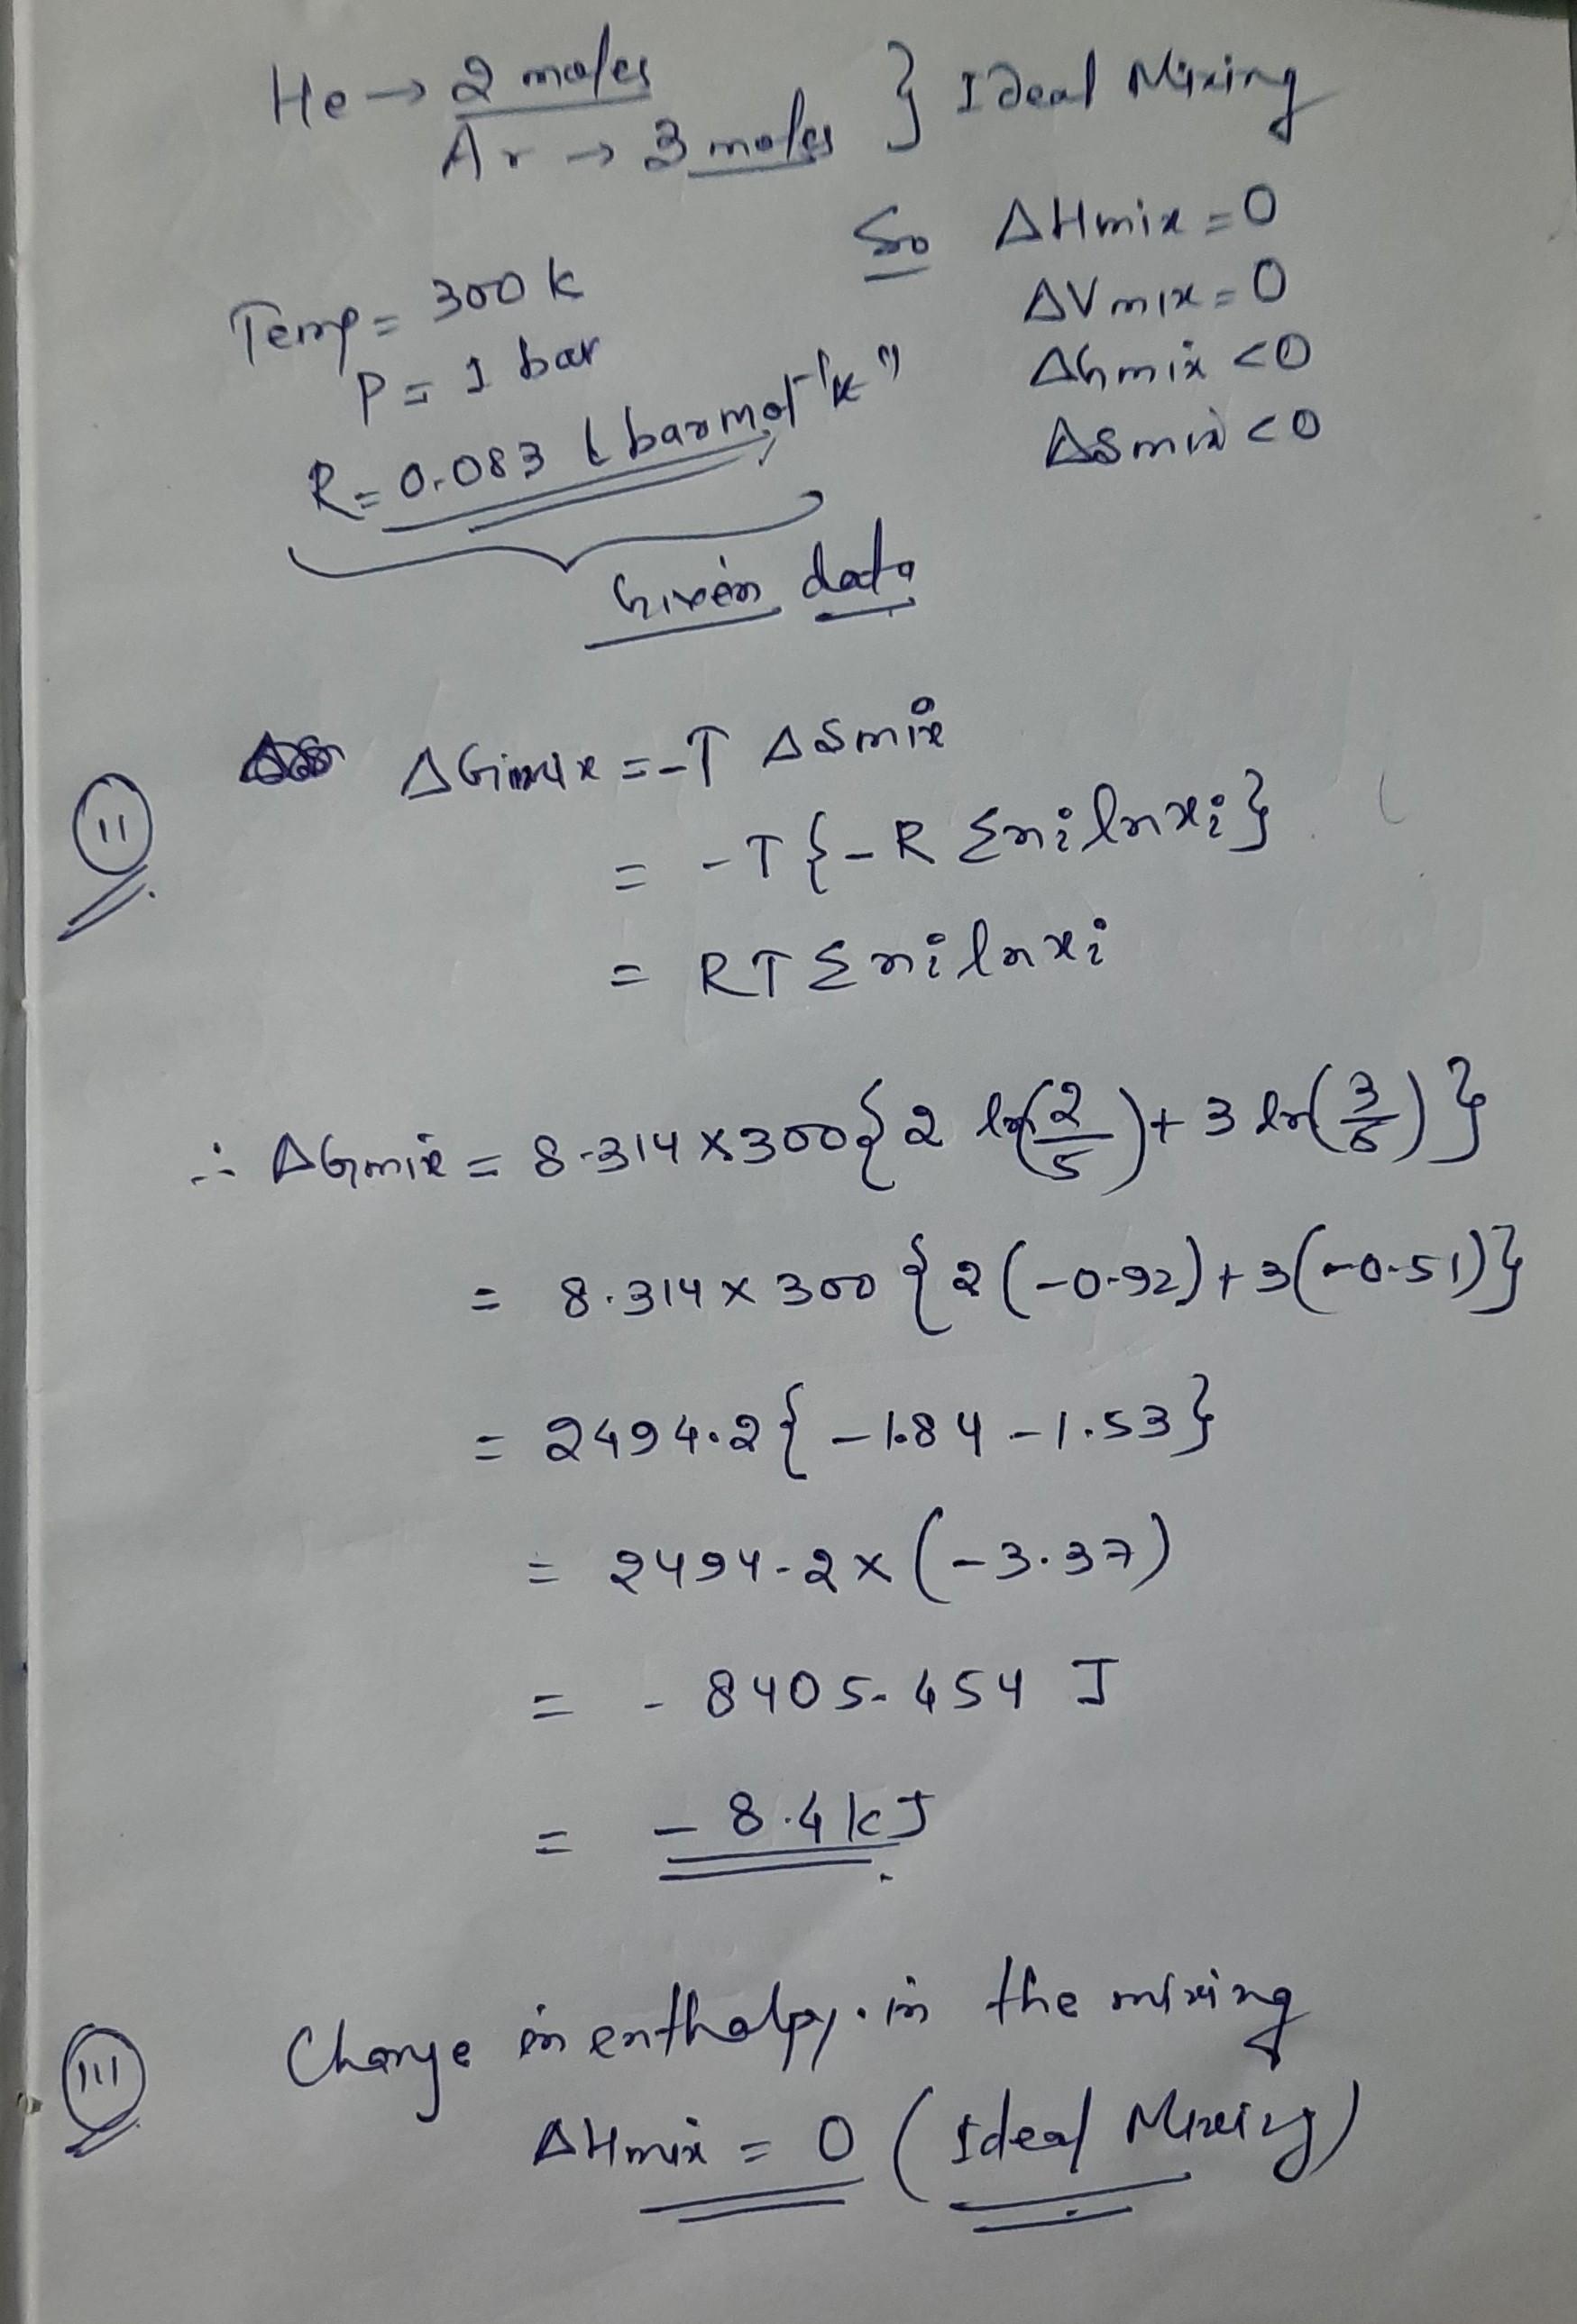 He → 2 moles
Ar → 3 moles } Ideal Mixing
So ΔHmix = 0
Temp = 300 K
ΔVmix = 0
P = 1 bar
ΔGmix < 0
R = 0.083 L bar mol⁻¹ K⁻¹
ΔSmix < 0
Given data
(ii) ΔGmix = -T ΔSmix
= -T {-R Σni ln xi}
= RT Σ ni ln xi
∴ ΔGmix = 8.314 × 300 { 2 ln(2/5) + 3 ln(3/5) }
= 8.314 × 300 { 2 (-0.92) + 3 (-0.51) }
= 2494.2 { -1.84 - 1.53 }
= 2494.2 × (-3.37)
= - 8405.454 J
= - 8.4 kJ
(iii) Change in enthalpy in the mixing
ΔHmix = 0 (Ideal Mixing)